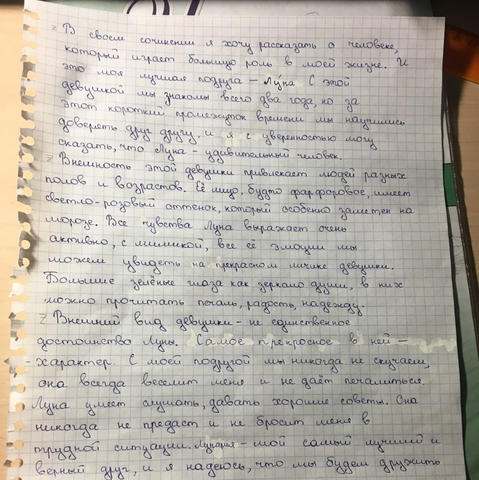 Z В своем сочинении я хочу рассказать о человеке,
который играет большую роль в моей жизне. И
это моя лучшая подруга – Луна С этой
девушкой мы знакомы всего два года, но за
этот короткий промежуток времени мы научились
доверять друг другу, и я с уверенностью могу
сказать, что Луна - удивительный человек.
Z Внешность этой девушки привлекает людей разных
полов и возрастов. Её лицо, будто фарфоровое, имеет
светло-розовый оттенок, который особенно заметен на
морозе. Все чувства Луна выражает очень
активно, с мимикой, все её эмоции мы
можем увидеть на прекрасном личике девушки.
Большие зелёные глаза как зеркало души, в них
можно прочитать печаль, радость, надежду.
Z Внешний вид девушки - не единственное
достоинство Луны. Самое прекрасное в ней –
- характер С моей подругой мы никогда не скучаем,
она всегда веселит меня и не даёт печалиться.
Луна умеет слушать, давать хорошие советы. Она
никогда не предаст и не бросит меня в
трудной ситуации. – мой самый лучший и
верный друг, и я надеюсь, что мы будем дружить